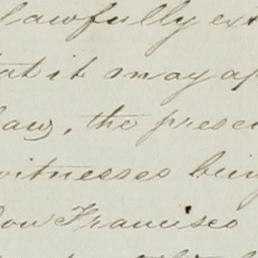 lawfully ex
at it may ap
law, the presen
witnesses being
Don Francisco